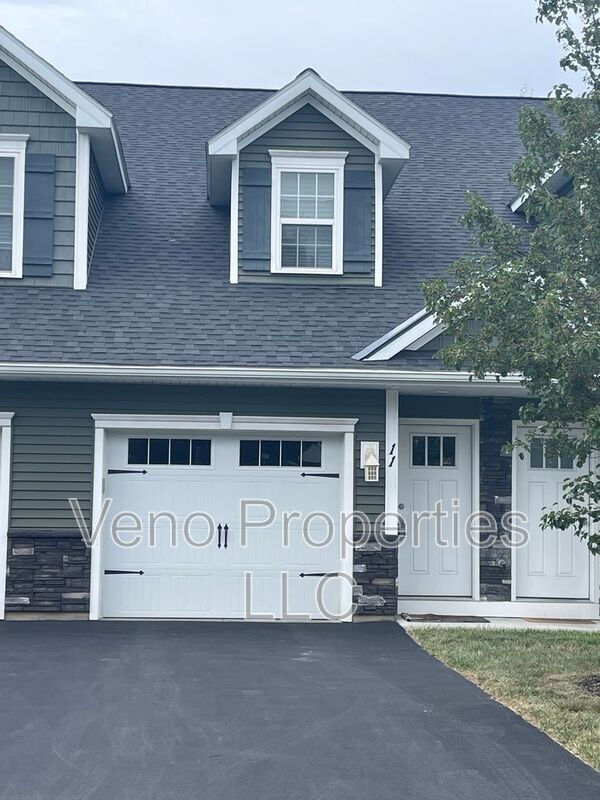 11
Veno Properties
LLC